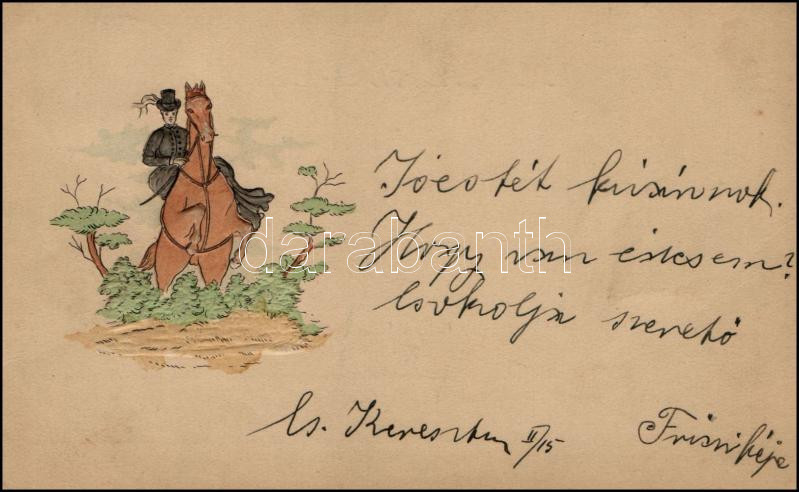 Jó estét kivánnok.
Hogy van édesem?
Csókolja szerető
Cs. Keresztur II/15
darabanth